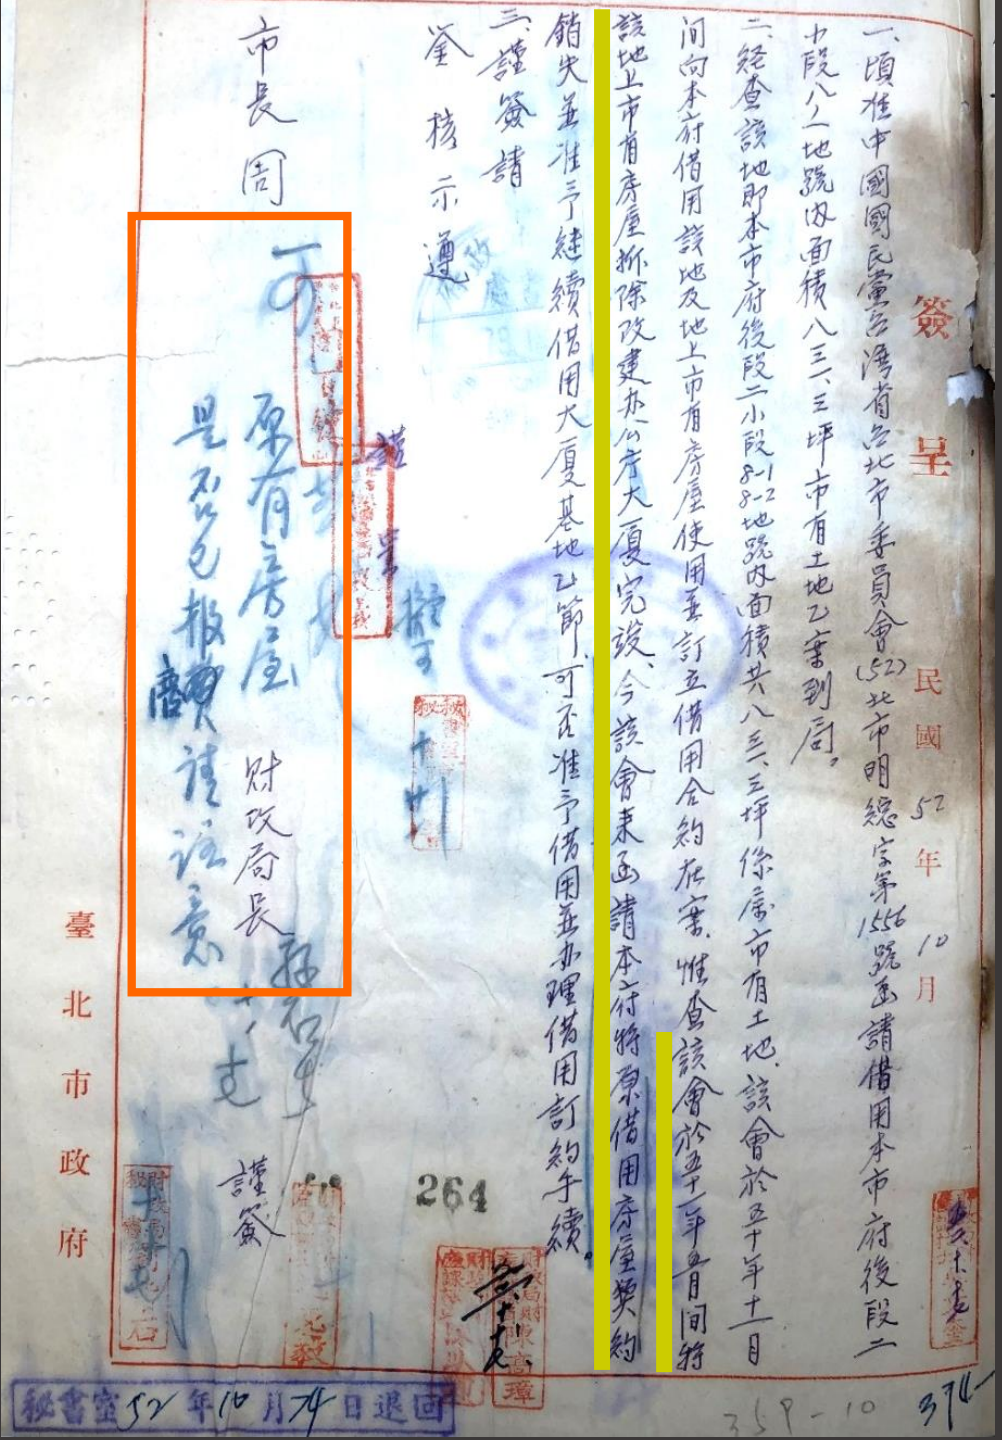 簽呈 民國52年10月
一、頃准中國國民黨台灣省台北市委員會(52)北市明總字第1556號函請借用本市府後段二
小段八八一地號內面積八三一、三坪市有土地乙案到局。
二、經查該地即本市府後段二小段8-1 8-2地號內面積共八三一、三坪係屬市有土地、該會於五十年十一月
間向本府借用該地及地上市有房屋使用並訂立借用合約在案、惟查該會於五十一年五月間將
該地上市有房屋拆除改建办公庁大廈完竣、今該會来函請本府將原借用房屋契約
銷失並准予継續借用大廈基地乙節、可否准予借用並办理借用訂約手續。
三、謹簽請
鉴核示遵
謹呈
市長周
擬可
可
原有房屋
是否已報賣請註意
財政局長
謹簽
264
臺北市政府
秘書室52年10月24日退回
359-10
374